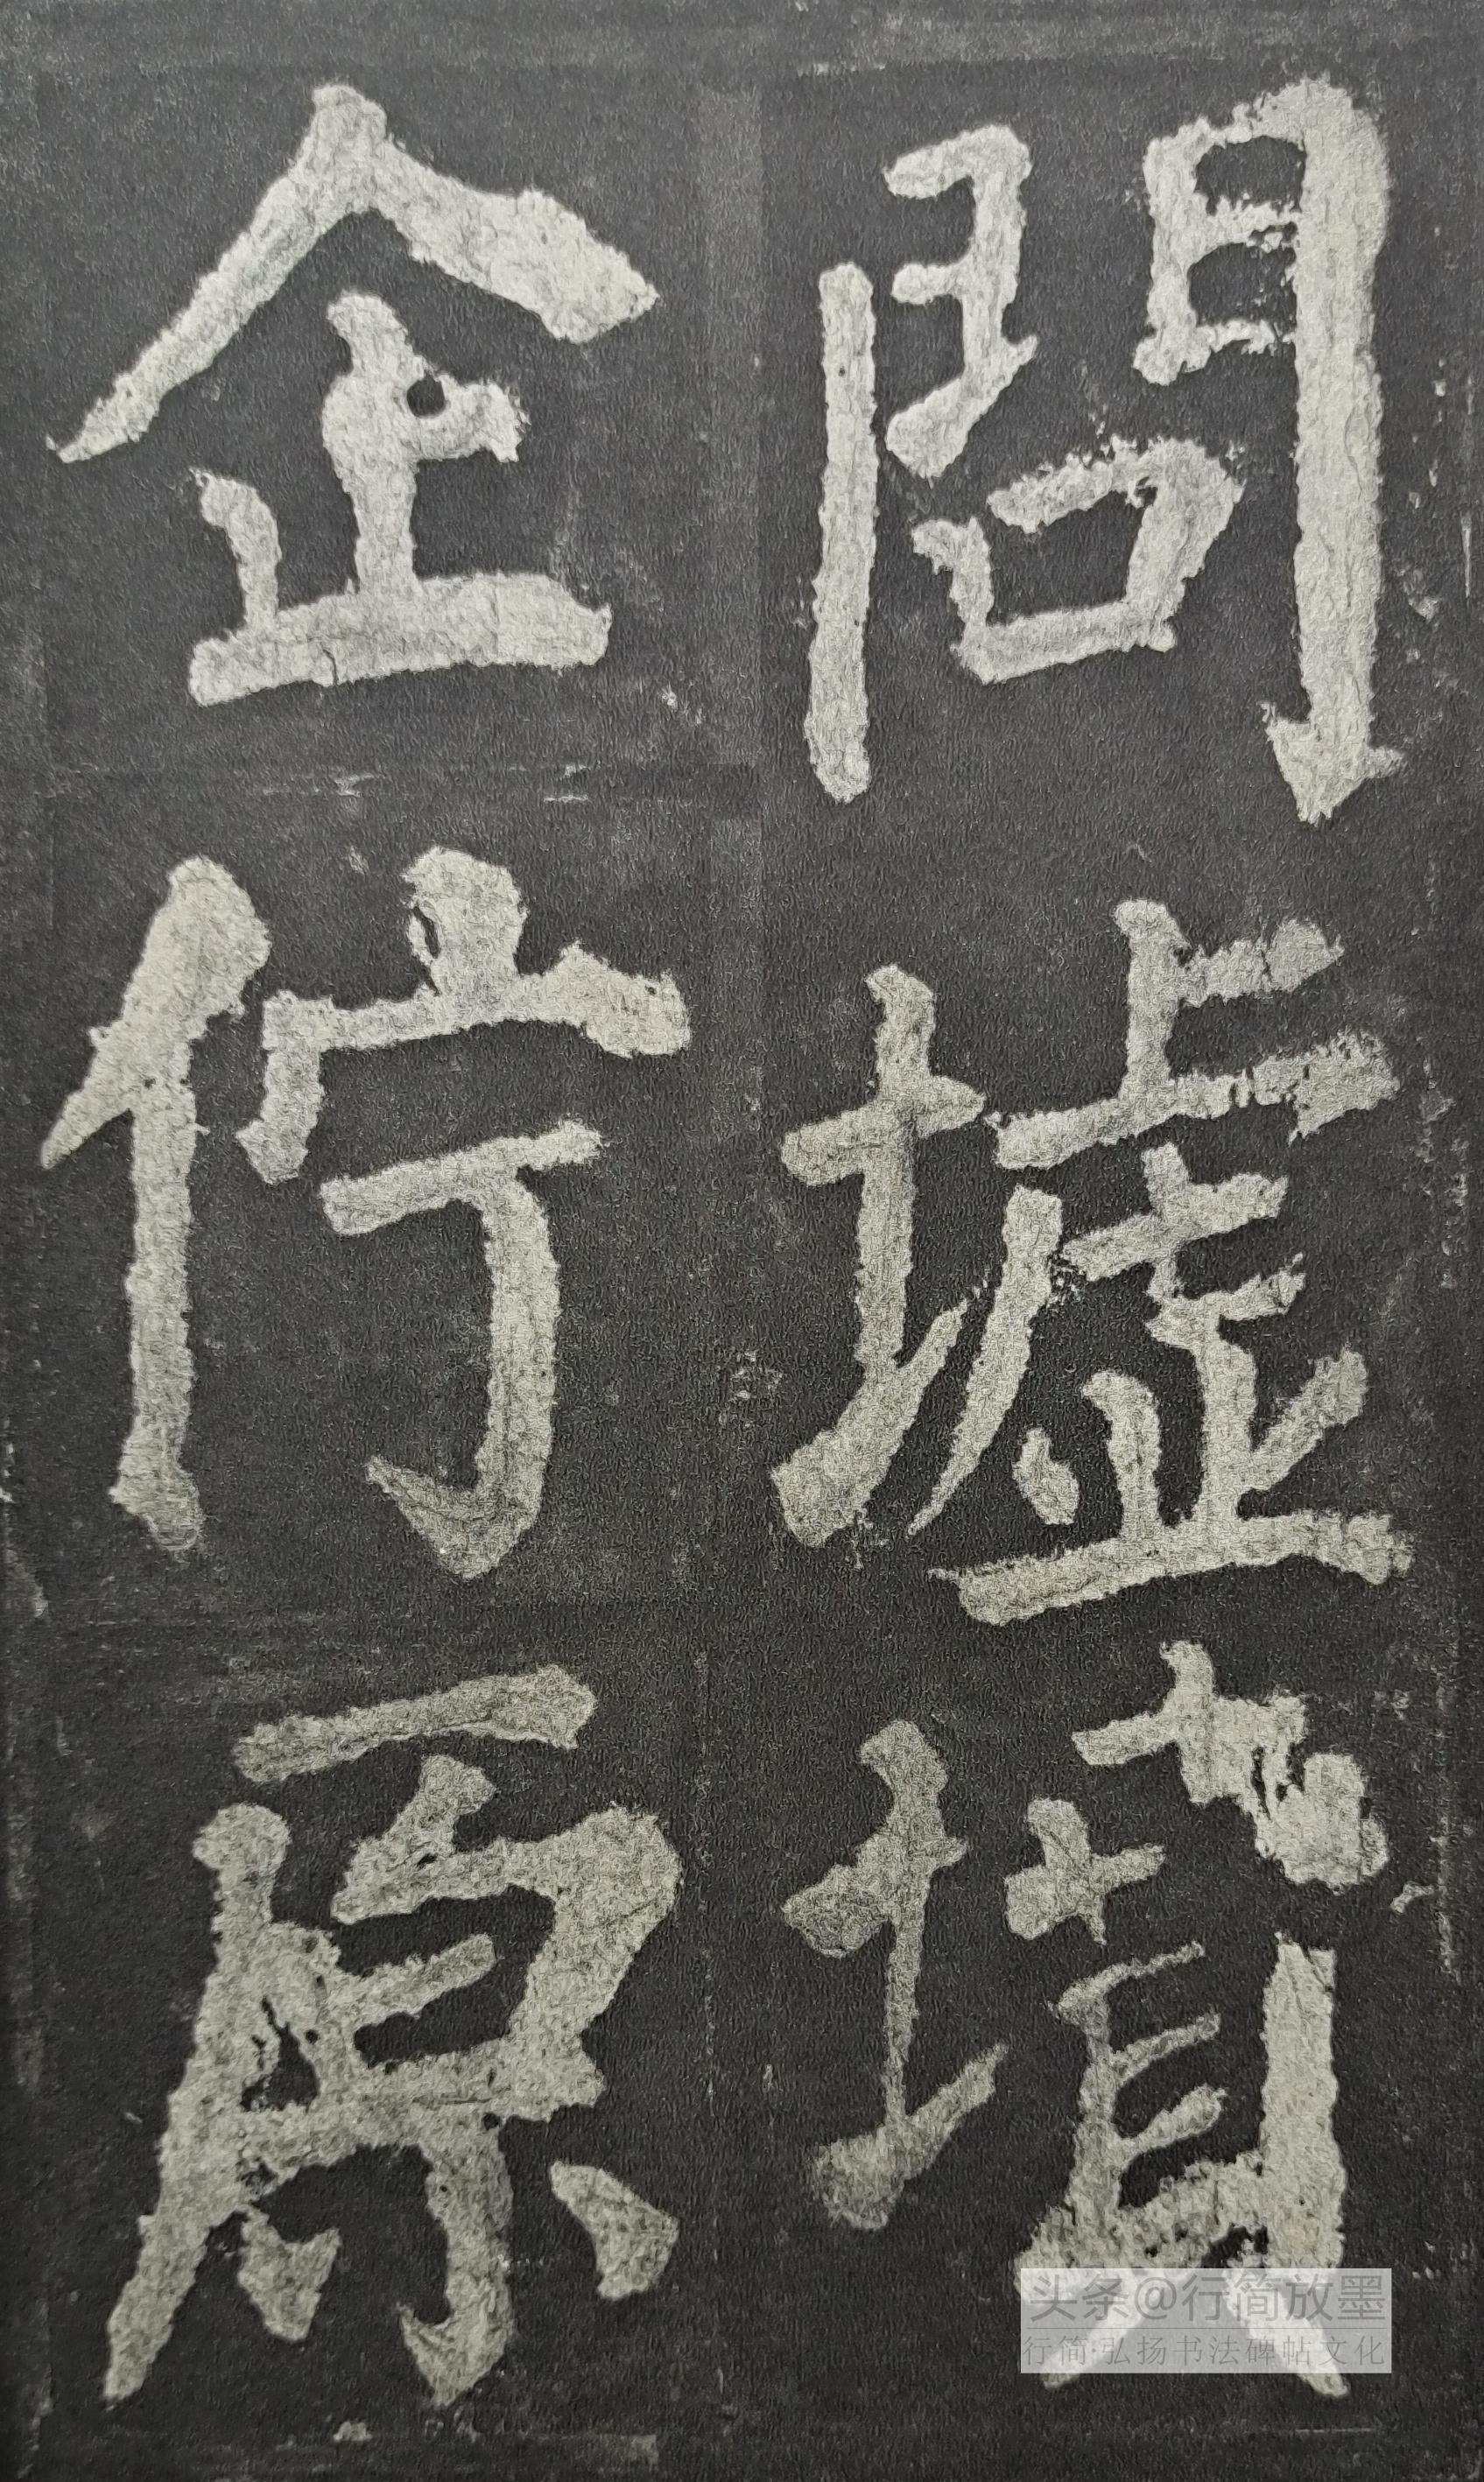 問墟墳
企佇原
头条@行简放墨
行简·弘扬书法碑帖文化